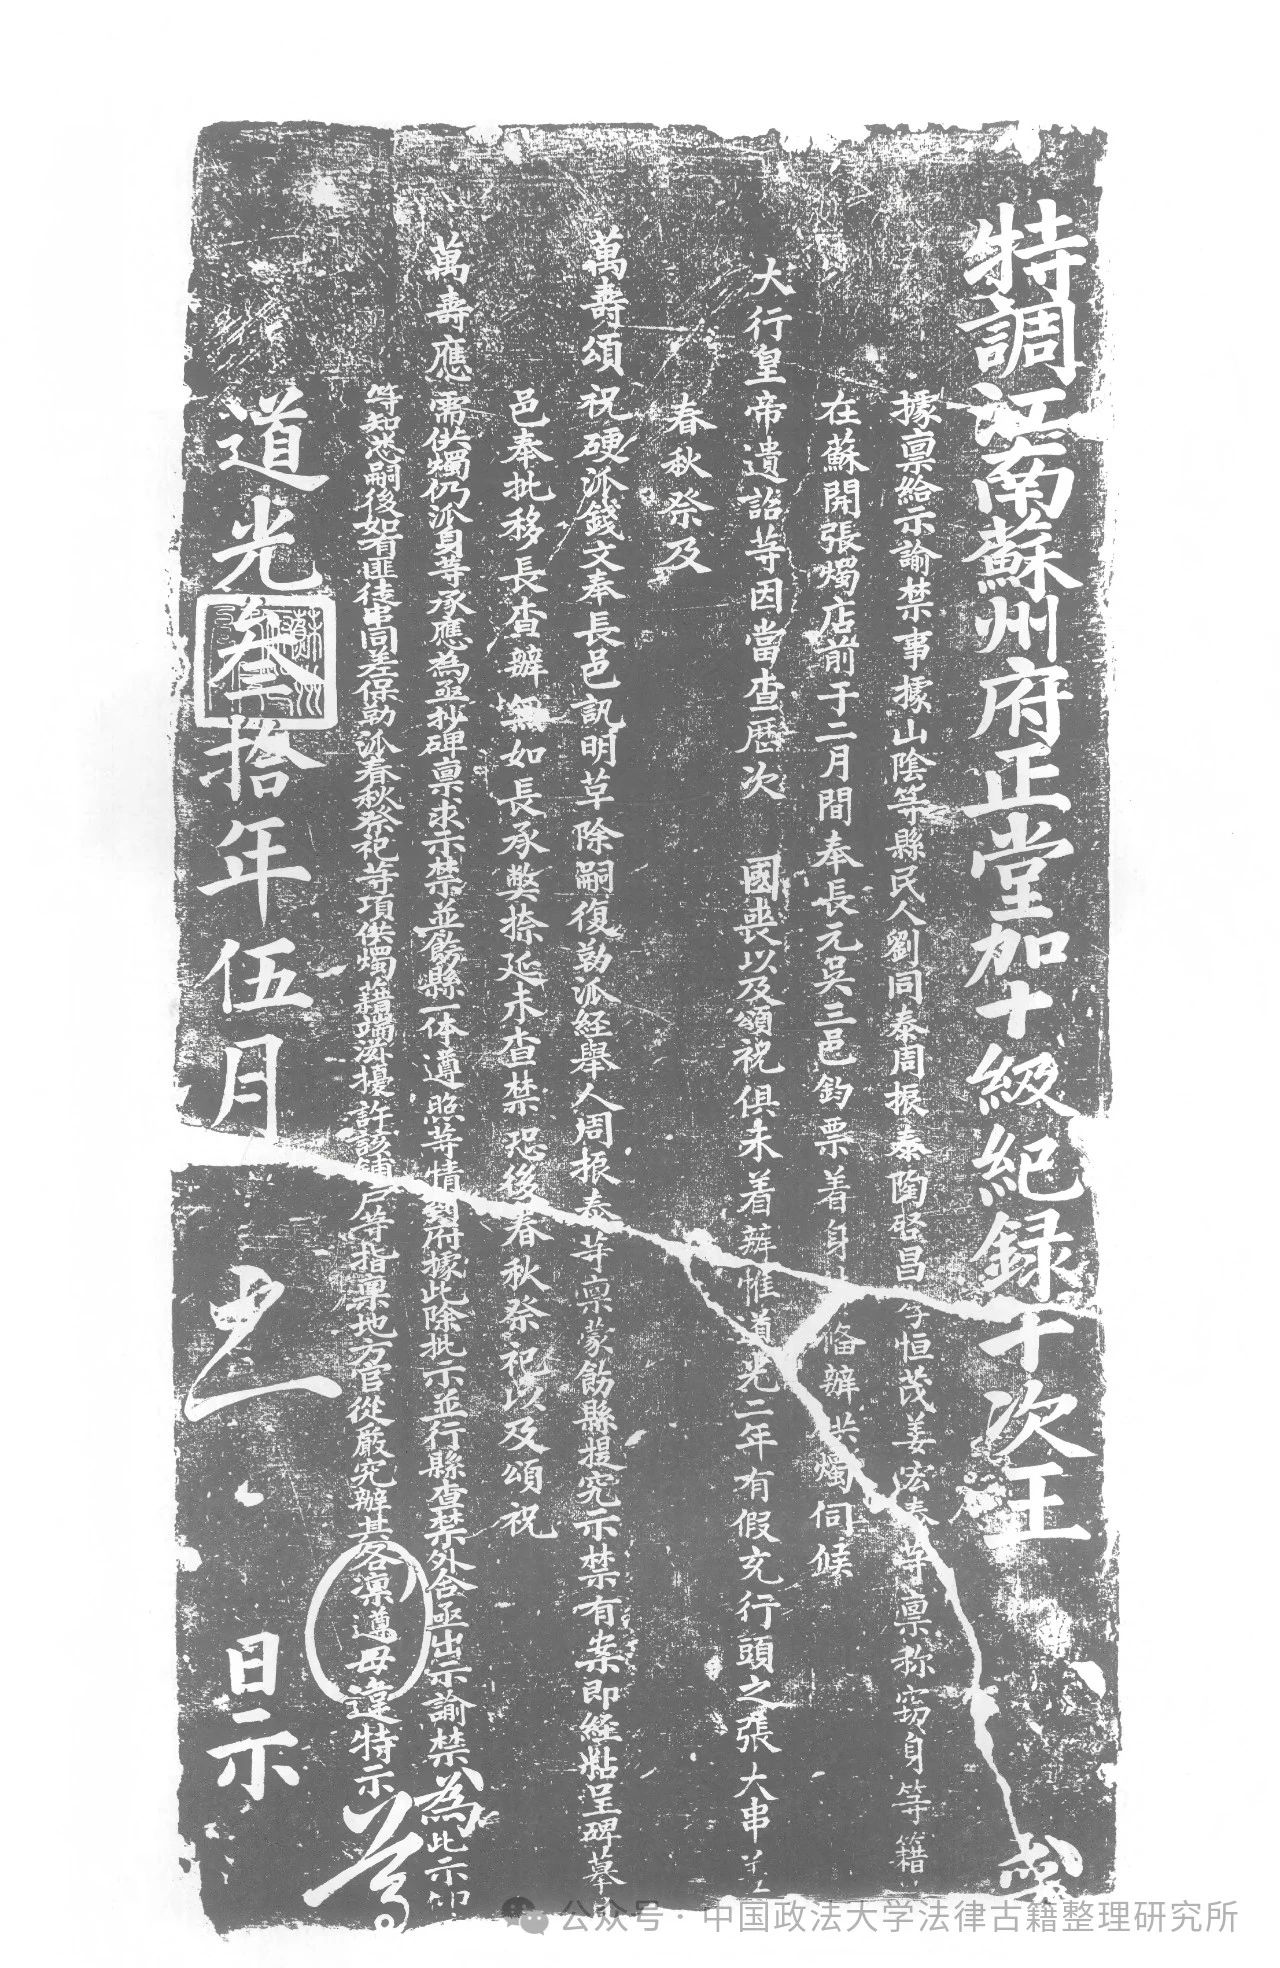 特調江南蘇州府正堂加十級紀録十次王
據禀給示諭禁事據山陰等縣民人劉同泰周振泰陶啓昌李恒茂姜宏泰等禀称窃身等籍
在蘇開張燭店前于二月間奉長元吳三邑鈞票着身備辦供燭伺候
大行皇帝遺詔等因當查歷次 國喪以及頌祝俱未着辦惟道光二年有假充行頭之張大串差
春秋祭及
萬壽頌祝硬派錢文奉長邑訊明草除嗣復勒派經舉人周振泰等禀蒙飭縣提究示禁有案即經粘呈碑摹
邑奉批移長查辦無如長承弊捺延未查禁恐後春秋祭祀以及頌祝
萬壽應需供燭仍派身等承應為亟抄碑禀求示禁並飭縣一体遵照等情到府據此除批示並行縣查禁外合亟出示諭禁為此示仰
等知悉嗣後如有匪徒串同差保勒派春秋祭祀等項供燭藉端滋擾許該鋪戶等指禀地方官從嚴究辦其各凛遵毋違特示
遵
道光叁拾年伍月 日示
蘇州
公众号·中国政法大学法律古籍整理研究所